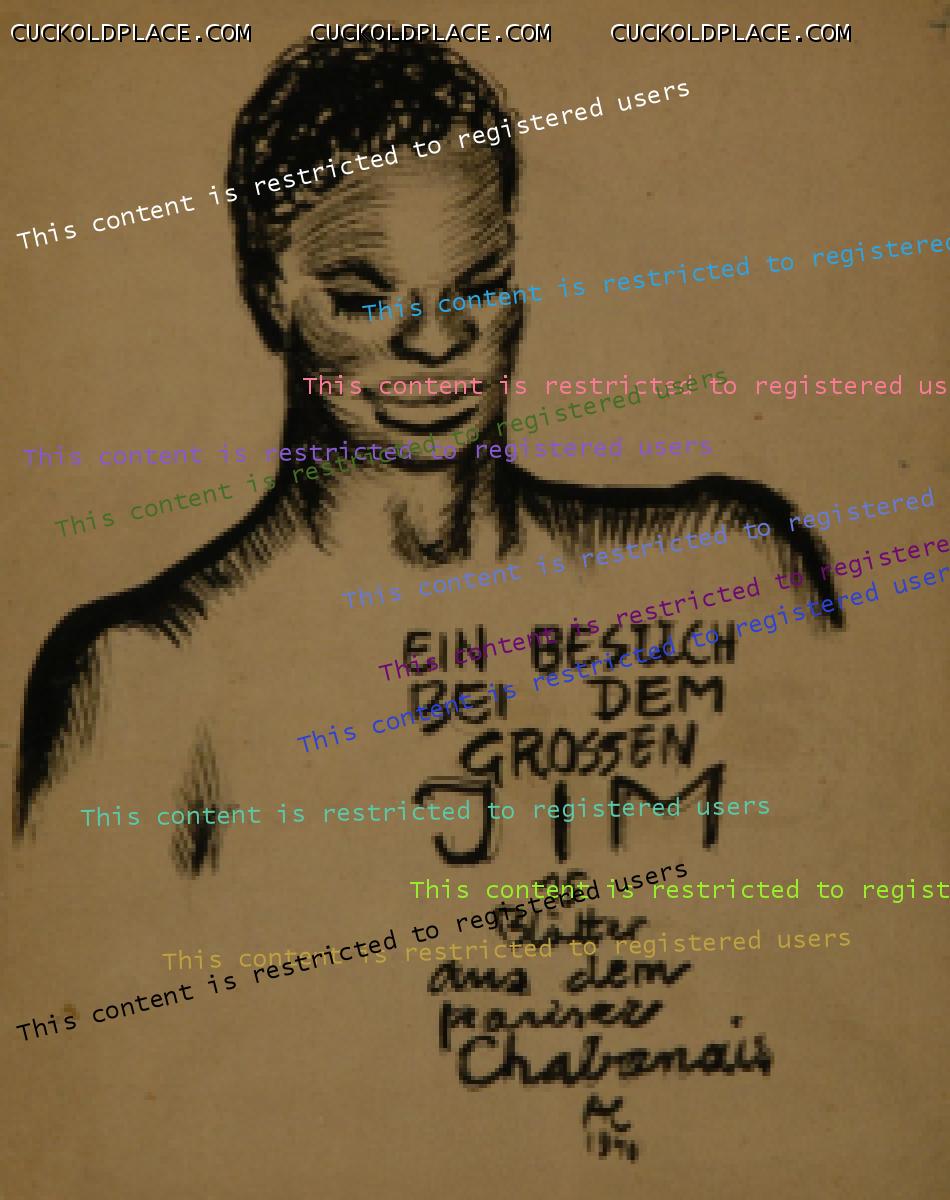 CUCKOLDPLACE.COM CUCKOLDPLACE.COM CUCKOLDPLACE.COM
This content is restricted to registered users
This content is restricted to registered
This content is restricted to registered us
This content is restricted to registered users
This content is restricted to registered users
This content is restricted to registered
This content is restricted to registere
This content is restricted to registered user
EIN BESUCH
BEI DEM
GROSSEN
JIM
This content is restricted to registered users
This content is restricted to regist
This content is restricted to registered users
This content is restricted to registered users
Blätter
aus dem
pariser
Chabanais